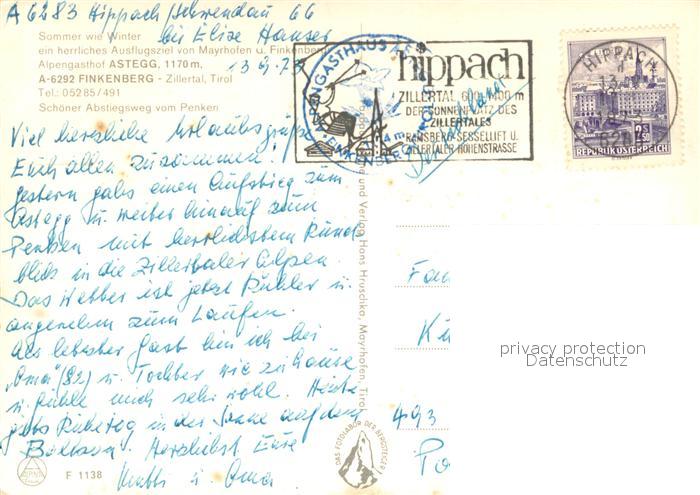 A 6283 Hippach/Schwendau 66
bei Elise Hauser
13.9.73
Sommer wie Winter
ein herrliches Ausflugsziel von Mayrhofen u. Finkenberg
Alpengasthof ASTEGG, 1170 m,
A-6292 FINKENBERG - Zillertal, Tirol
Tel.: 05285/491
Schöner Abstiegsweg vom Penken
hippach
ZILLERTAL 600-1400 m
DER SONNENPLATZ DES
ZILLERTALES
RAMSBERG-SESSELLIFT U.
ZILLERTALER HÖHENSTRASSE
HIPPACH
REPUBLIK ÖSTERREICH
Viel herzliche Urlaubsgrüße
Euch allen zusammen!
Gestern gabs einen Aufstieg zum
Astegg u. weiter hinauf zum
Penken mit herrlichstem Rund
blick in die Zillertaler Alpen.
Das Wetter ist jetzt kühler u.
angenehm zum Laufen.
Als letzter Gast bin ich bei
"Oma" (82) u. Tochter wie zuhause
u. fühle mich sehr wohl. Heute
gabs Ruhetag in der Sonne auf dem
Balkon. Herzlichst Eure
u. Oma
und Verlag Hans Hruschka, Mayrhofen, Tirol
DAS FOTOLABOR DER BERGSTEIGER
F 1138
Fa
493
privacy protection
Datenschutz